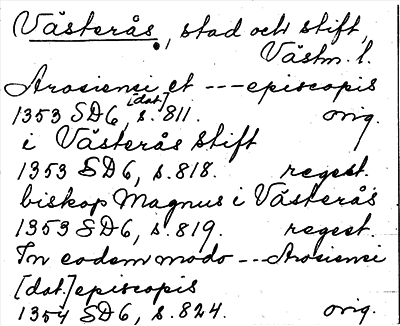 Västerås, stad och stift,
Västm. l.
Arosiensi et --- episcopis
[dat.]
1353 SD6, s. 811. orig.
i Västerås stift
1353 SD6, s. 818. regest.
biskop Magnus i Västerås
1353 SD6, s. 819. regest.
In eodem modo --- Arosiensi
[dat.] episcopis
1354 SD6, s. 824. orig.